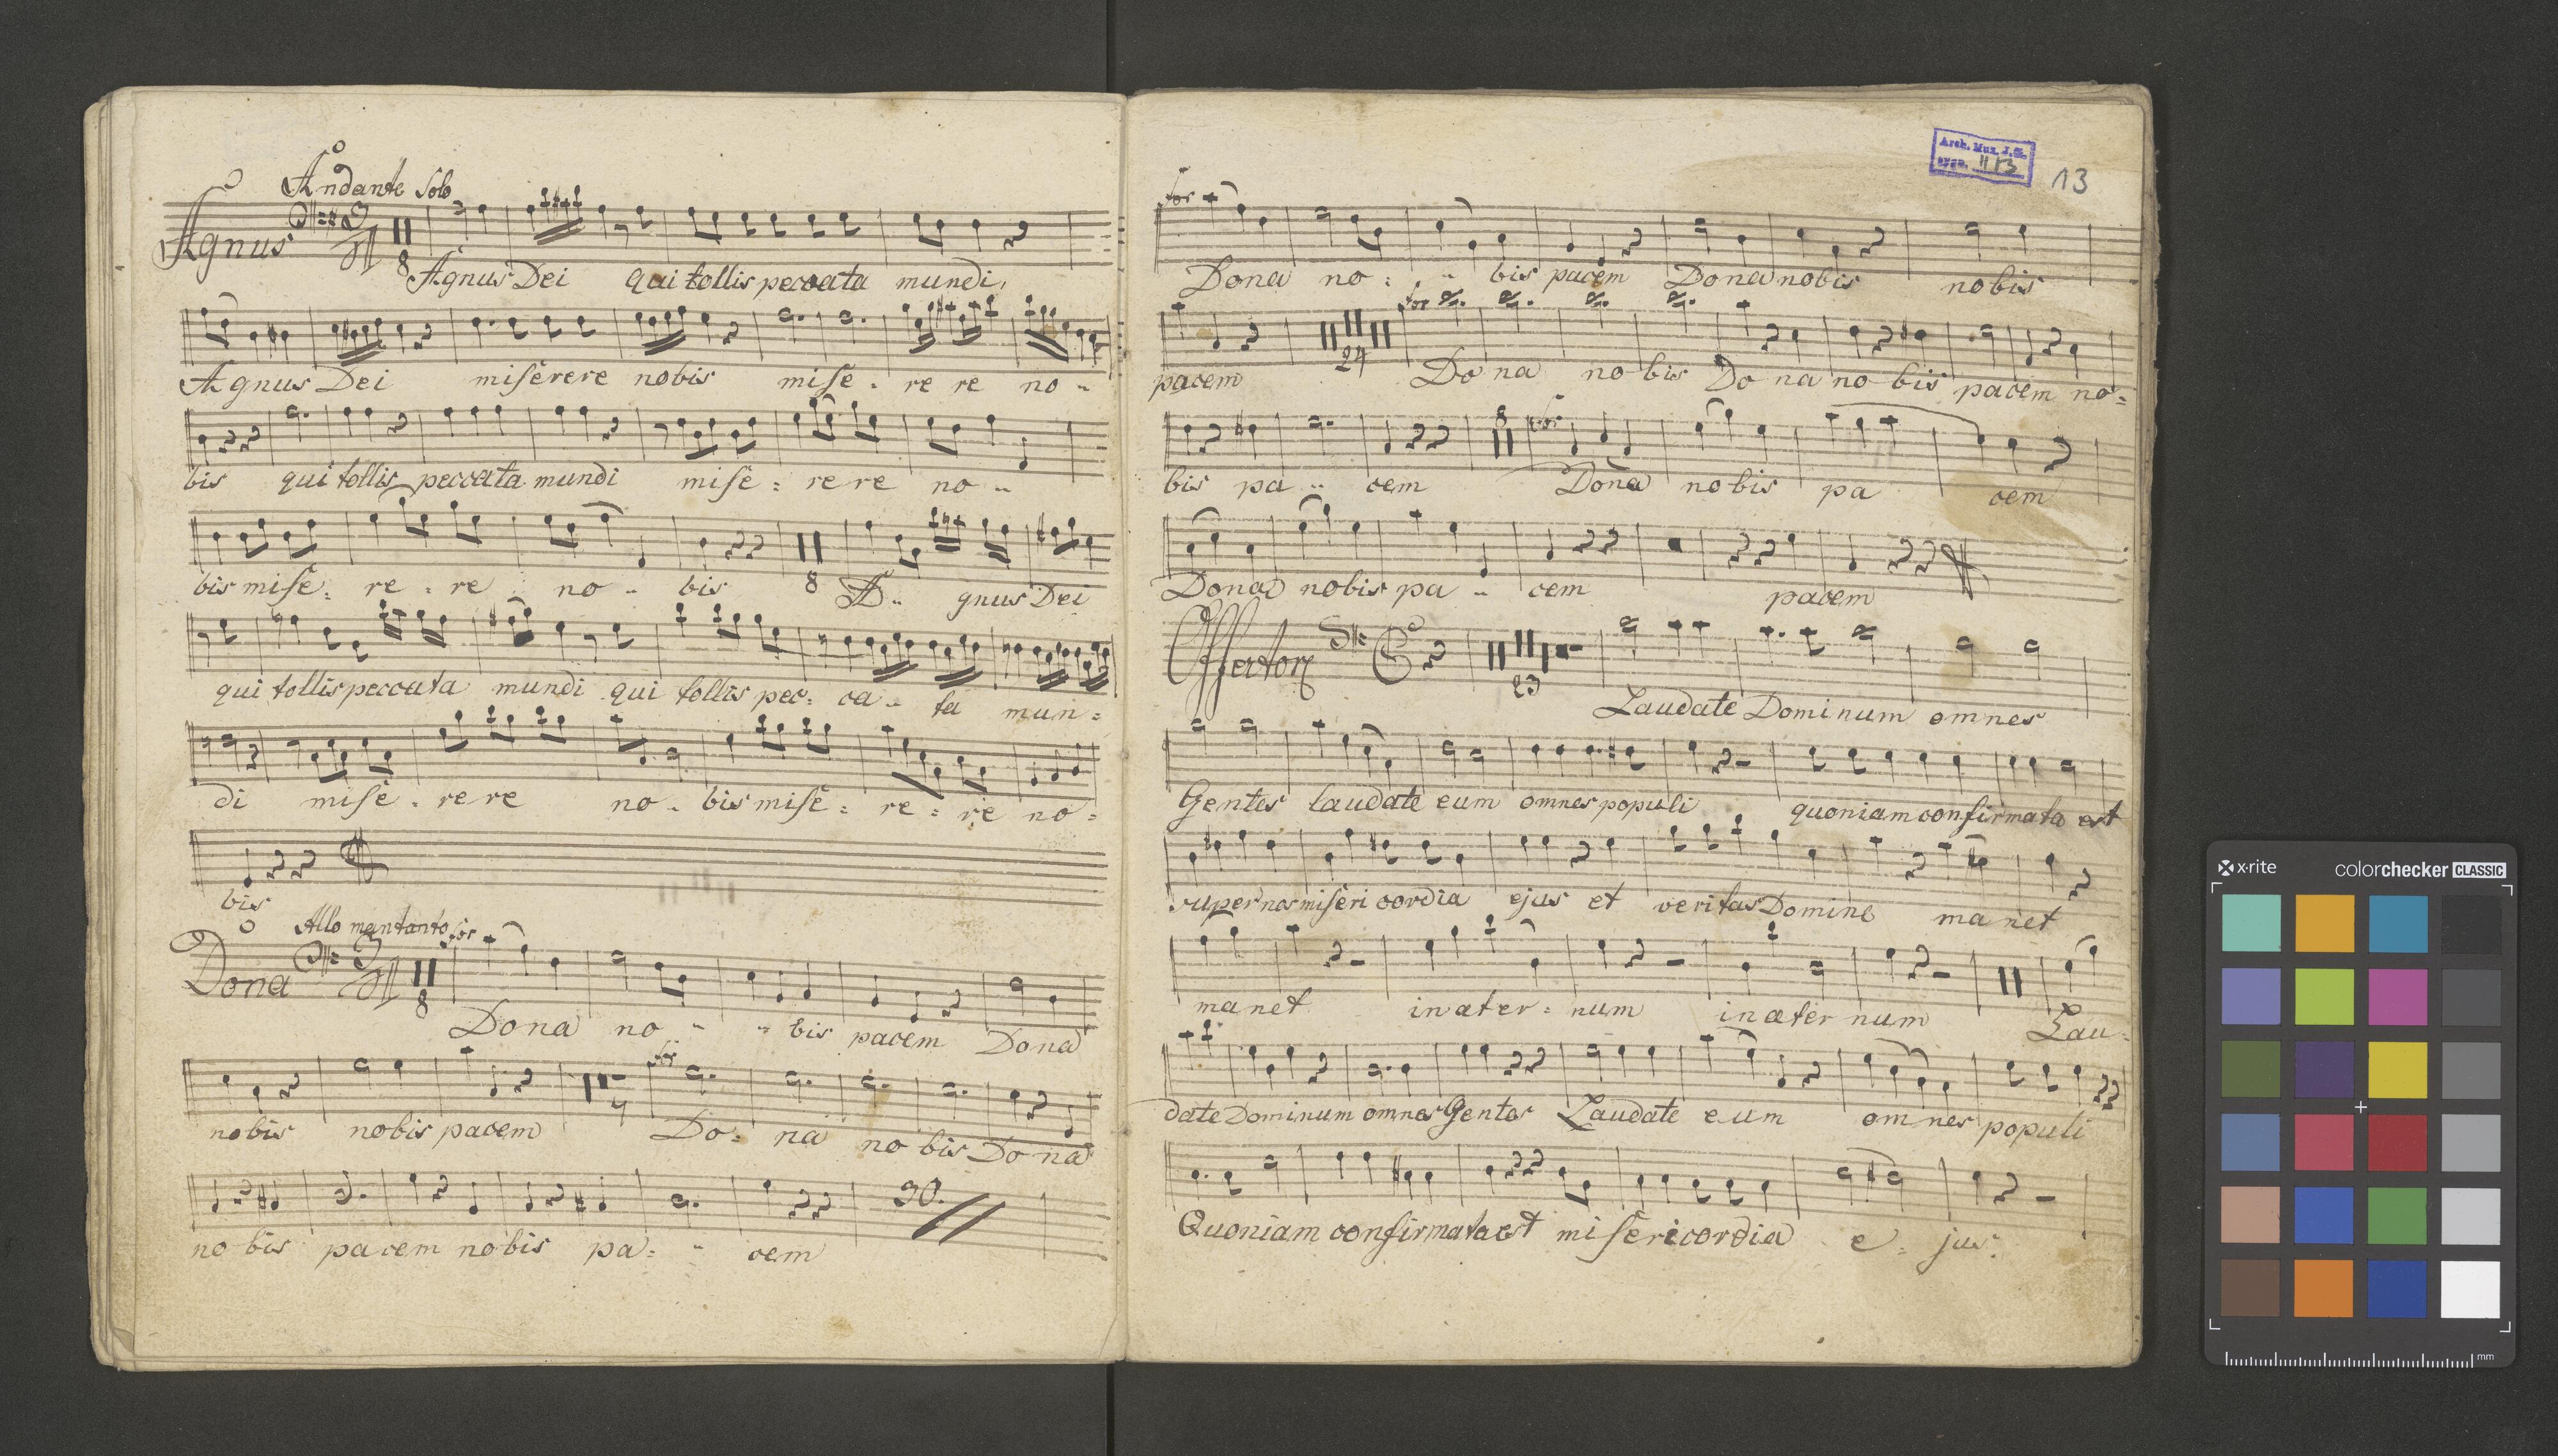 Andante Solo
Agnus 8 Agnus Dei qui tollis peccata mundi,
Agnus Dei miserere nobis mise - re re no -
bis qui tollis peccata mundi mise : re re no -
bis mise : re : re no - bis 8 A - gnus Dei
qui tollis peccata mundi qui tollis pec : ca - ta mun :
di mise - re re no - bis mise : re : re no :
bis
Allo
for
Dona 8 Dona no - - bis pacem Dona
for
nobis nobis pacem Do : na no bis Do na
30.
no bis pa cem no bis pa : - cem
Arch. Muz. J.G.
II 13
13
for
Dona no : - bis pacem Dona nobis nobis
for
pacem 24 Do na no bis Do na no bis pacem no :
8 for
bis pa - cem Dona nobis pa cem
Dona nobis pa - cem pacem
Offertor 23 Laudate Dominum omnes
Gentes laudate eum omnes populi quoniam confirmata est
super nos misericordia ejus et veritas Domine ma net
manet in aeter : num in aeter num Lau :
date Dominum omnes Gentes Laudate eum omnes populi
Quoniam confirmata est misericordia e : jus.
x-rite colorchecker CLASSIC
mm